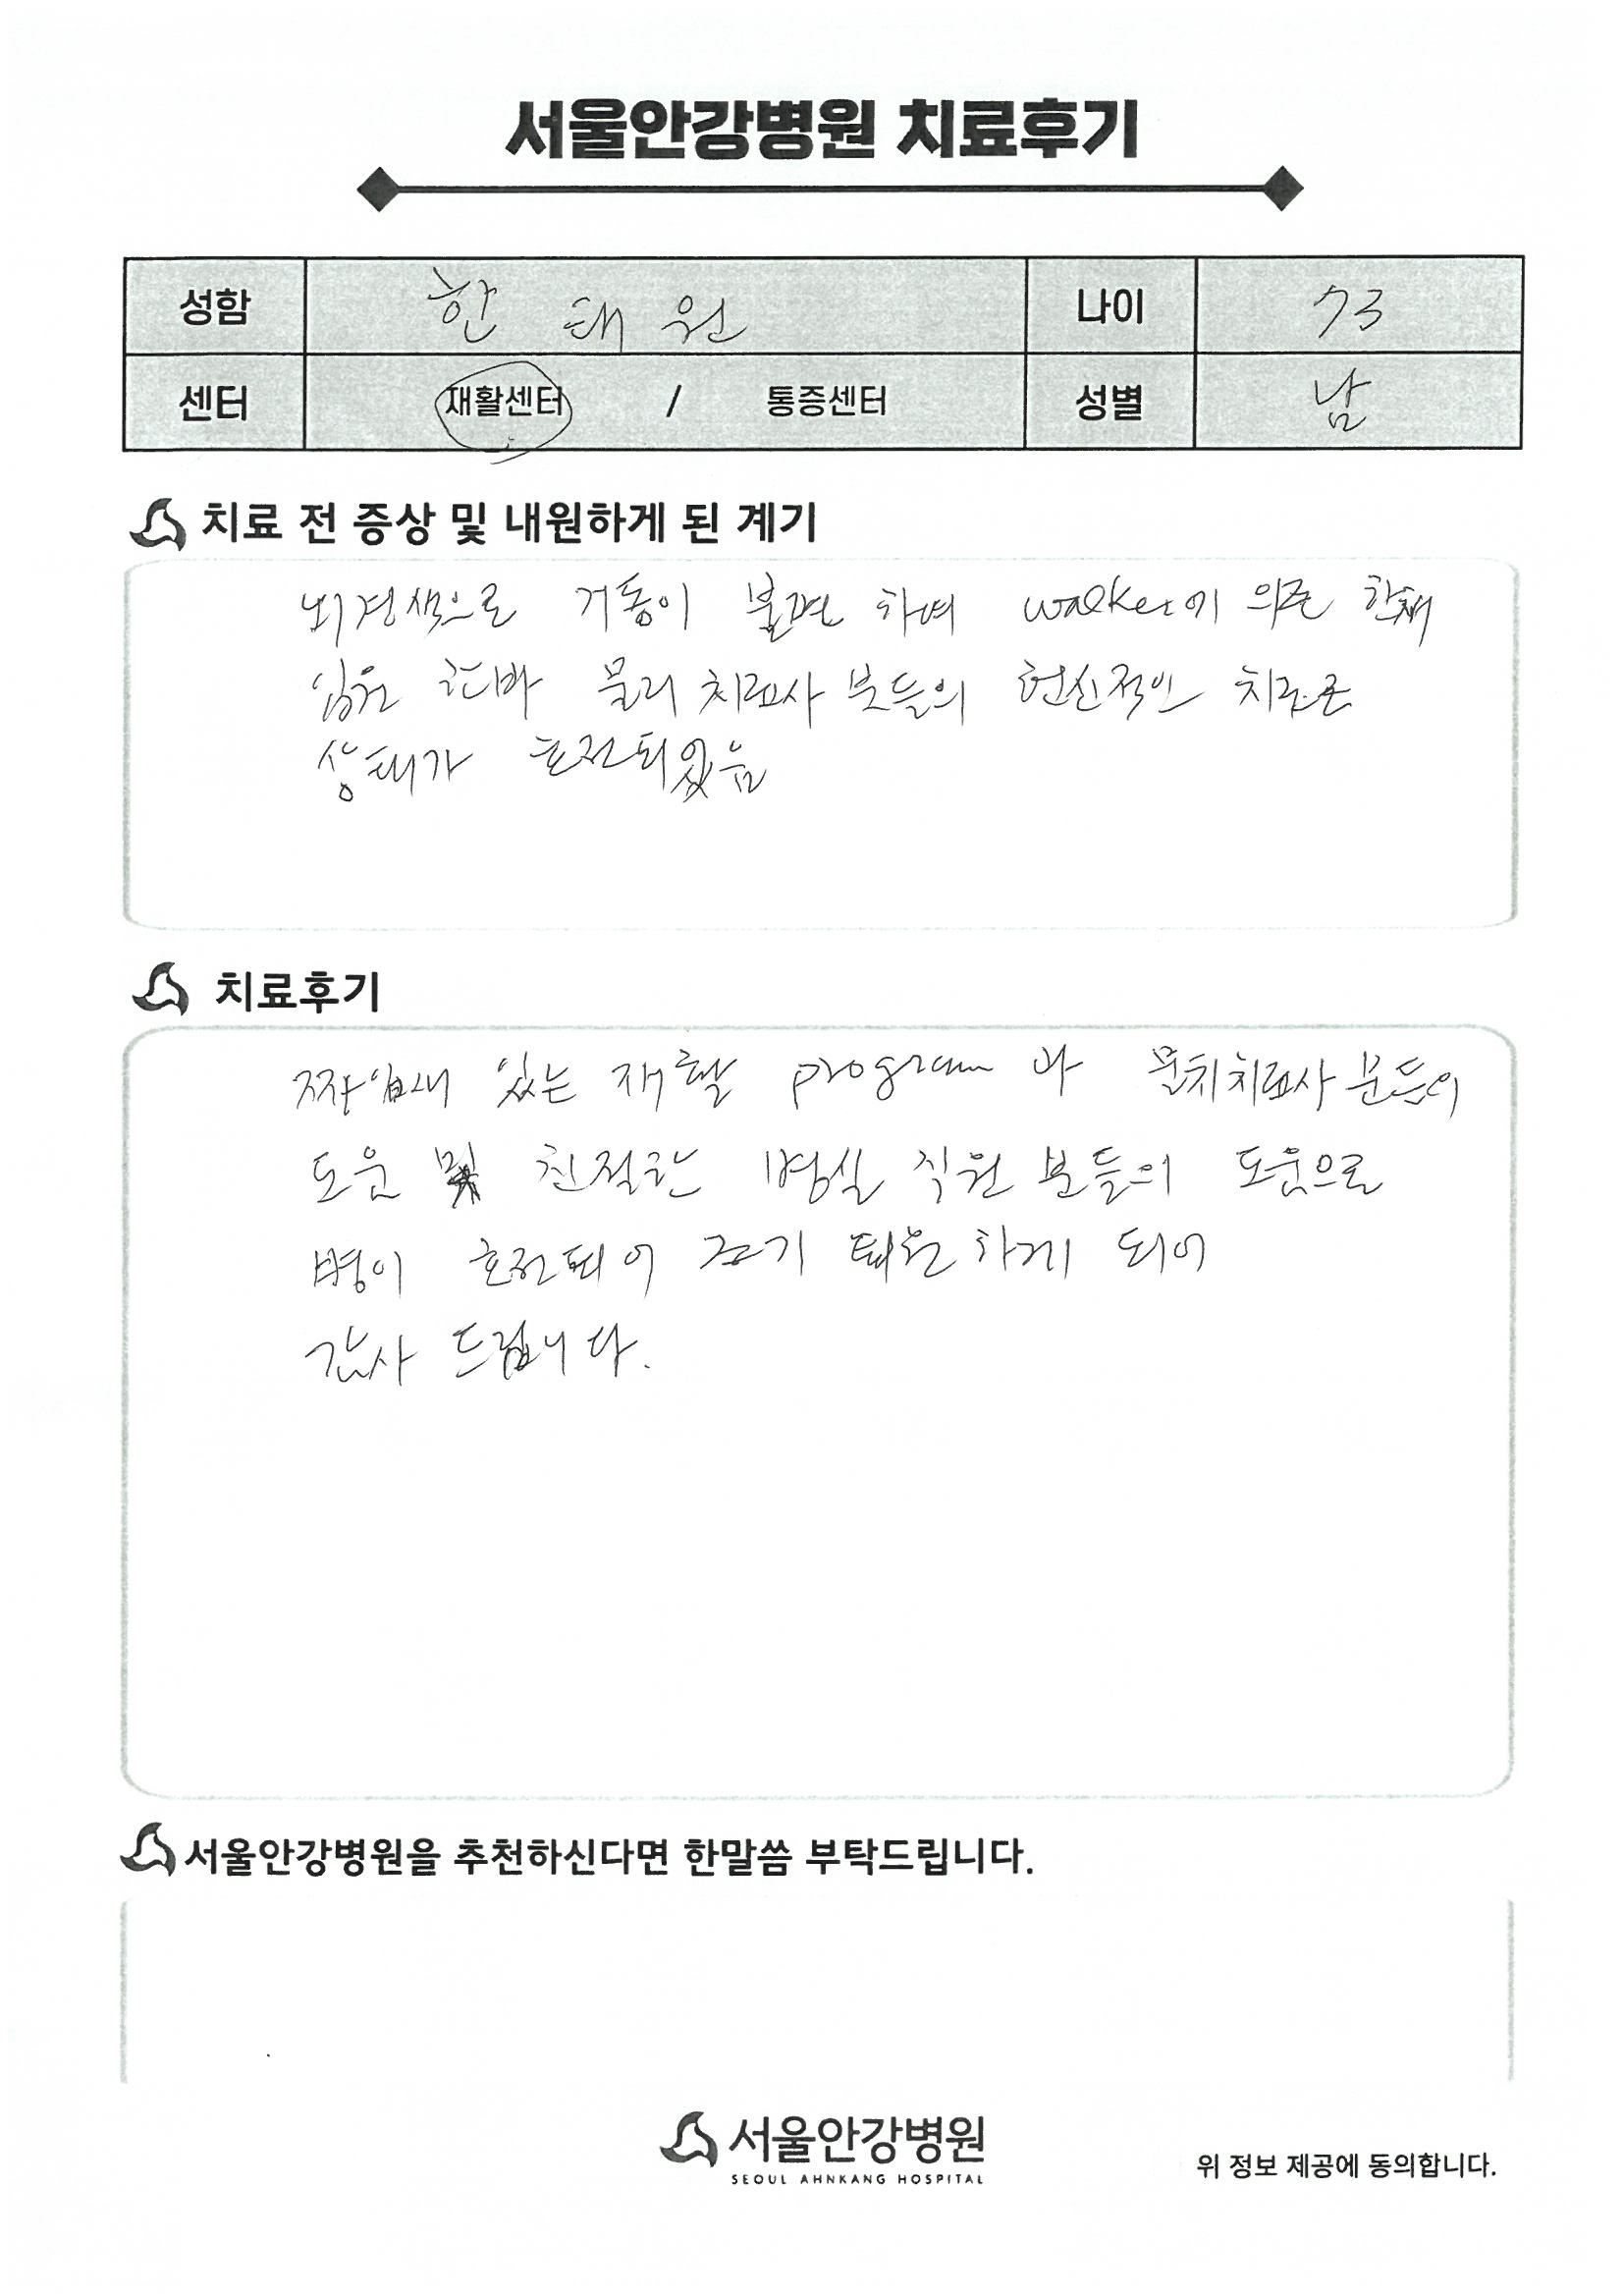 서울안강병원 치료후기
성함 한 태 원 나이 73
센터 재활센터 / 통증센터 성별 남
치료 전 증상 및 내원하게 된 계기
뇌경색으로 거동이 불편 하여 walker에 의존 한채
입원 한바 물리 치료사 분들의 헌신적인 치료로
상태가 호전되었음
치료후기
짜임새 있는 재활 program 과 물치치료사 분들의
도움 및 친절한 병실 직원 분들의 도움으로
병이 호전되어 조기 퇴원 하게 되어
감사 드립니다.
서울안강병원을 추천하신다면 한말씀 부탁드립니다.
서울안강병원
SEOUL AHNKANG HOSPITAL
위 정보 제공에 동의합니다.